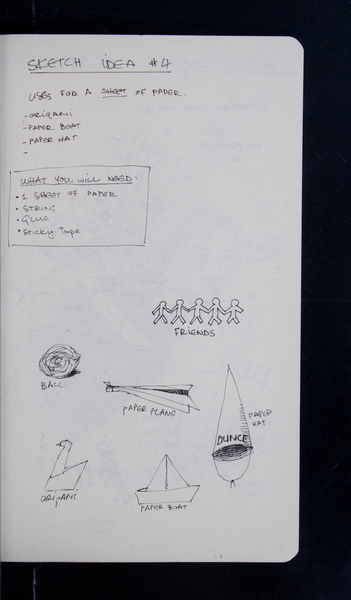 SKETCH IDEA #4
USES FOR A SHEET OF PAPER.
- ORIGAMI
- PAPER BOAT
- PAPER HAT
-
WHAT YOU WILL NEED:
• 1 SHEET OF PAPER
• STRING
• GLUE
• Sticky-Tape
FRIENDS
BALL
PAPER PLANE
PAPER
HAT
DUNCE
ORIGAMI
PAPER BOAT